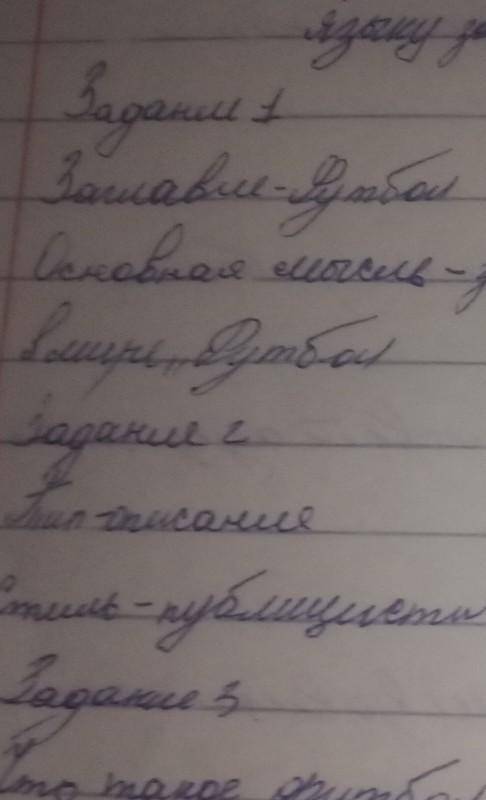 языку за
Задание 1
Заглавие - Футбол
Основная мысль - 
в мире „Футбол
Задание 2
Тип - описание
Стиль - публицисти
Задание 3
Что такое футбол